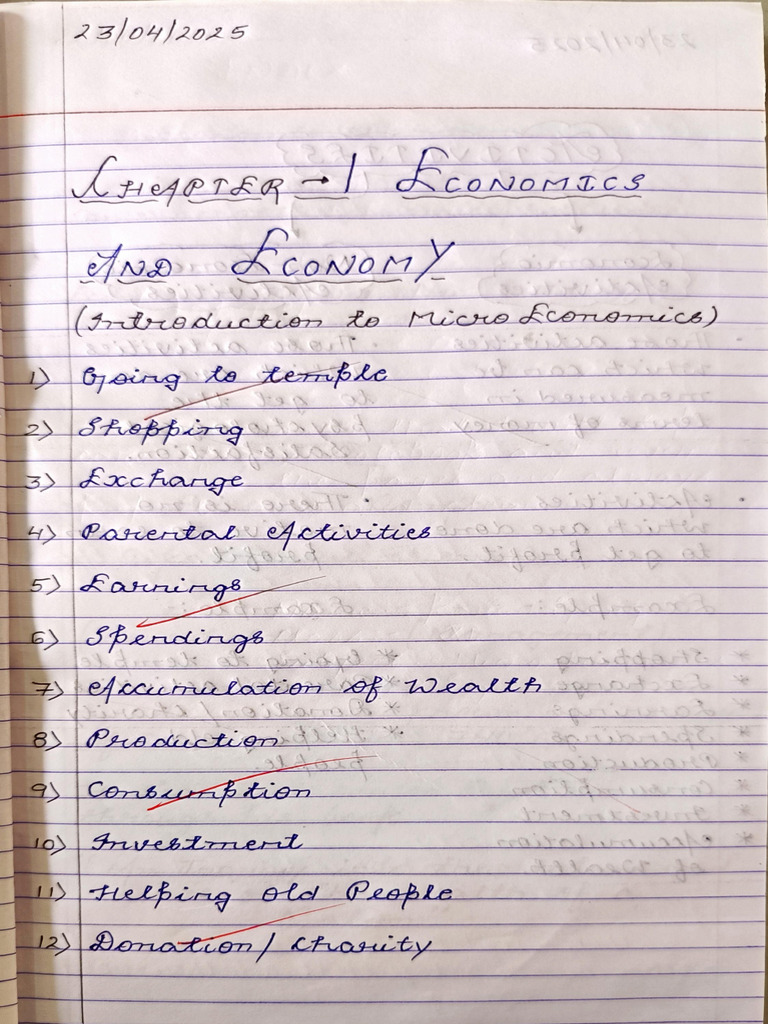 23/04/2025
CHAPTER → 1 ECONOMICS
AND ECONOMY
(Introduction to Micro Economics)
1) Going to temple
2) Shopping
3) Exchange
4) Parental Activities
5) Earnings
6) Spendings
7) Accumulation of Wealth
8) Production
9) Consumption
10) Investment
11) Helping old People
12) Donation/Charity